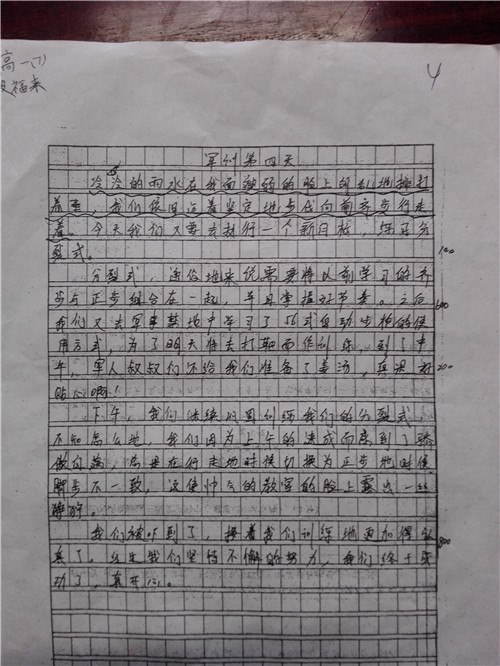 高一(1)
福来
4
军训第四天
冷冷的雨水在我面颊的脸上胡乱地拍打
着,我们依旧迈着坚定地步伐向前齐步行走
着。今天我们又要去执行一个新目标,练习分
列式。
100
分列式,通俗地来说需要将以前学习的齐
步与正步组合在一起,并且掌握好节奏。之后
我们又去军事禁地中学习了56式自动步枪的使
用方式,为了明天将去打靶而作训练。到了中
午,军人叔叔们还给我们准备了姜汤,真是
200
贴心啊!
下午,我们继续巩固训练我们的分列式,
不知怎么地,我们因为上午的速成而感到了骄
傲自满,总是在行走地时候切换为正步地时候
脚步不一致,这使帅气的教官的脸上露出一丝
我们被吓到了,接着我们训练地更加得认
300
真了,经过我们坚持不懈的努力,我们终于成
功了,真开心。